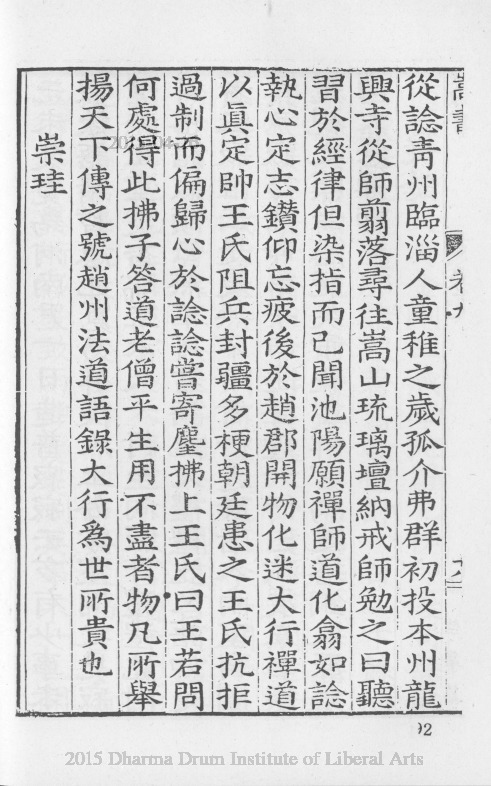 嵩書
卷九
從諗靑州臨淄人童稚之歲孤介弗群初投本州龍
興寺從師翦落尋往嵩山琉璃壇納戒師勉之曰聽
習於經律但染指而已聞池陽願禪師道化翕如諗
執心定志鑽仰忘疲後於趙郡開物化迷大行禪道
以眞定帥王氏阻兵封疆多梗朝廷患之王氏抗拒
過制而偏歸心於諗諗嘗寄麈拂上王氏曰王若問
何處得此拂子答道老僧平生用不盡者物凡所舉
揚天下傳之號趙州法道語錄大行爲世所貴也
崇珪
92
2015 Dharma Drum Institute of Liberal Arts